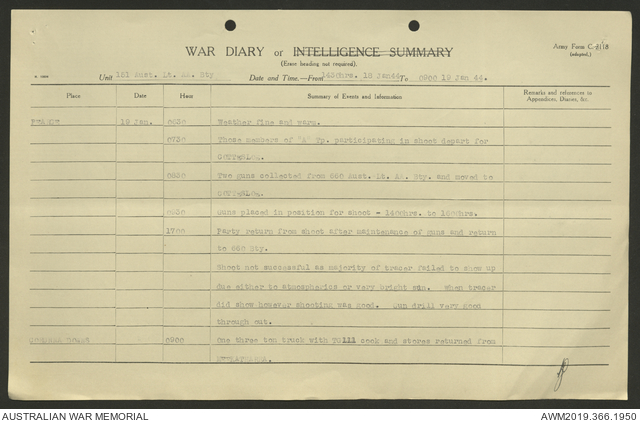 WAR DIARY or INTELLIGENCE SUMMARY
Army Form C.2118
(adapted.)
(Erase heading not required).
Unit 101 Aust. Lt. AA. Bty Date and Time.—From 1430hrs. 18 Jan44 To 0900 19 Jan 44.
Place Date Hour Summary of Events and Information Remarks and references to
Appendices, Diaries, &c.
19 Jan. 0630 Weather fine and warm.
0730 Those members of 'A' Tp. participating in shoot depart for
0830 Two guns collected from Aust. Lt. AA. Bty. and moved to
0930 Guns placed in position for shoot - 1400hrs. to 1600hrs.
1700 Party return from shoot after maintenance of guns and return
to Bty.
Shoot not successful as majority of tracer failed to show up
due either to atmospherics or very bright sun. When tracer
did show however shooting was good. Gun drill very good
through out.
0900 One three ton truck with cook and stores returned from
AUSTRALIAN WAR MEMORIAL
AWM2019.366.1950